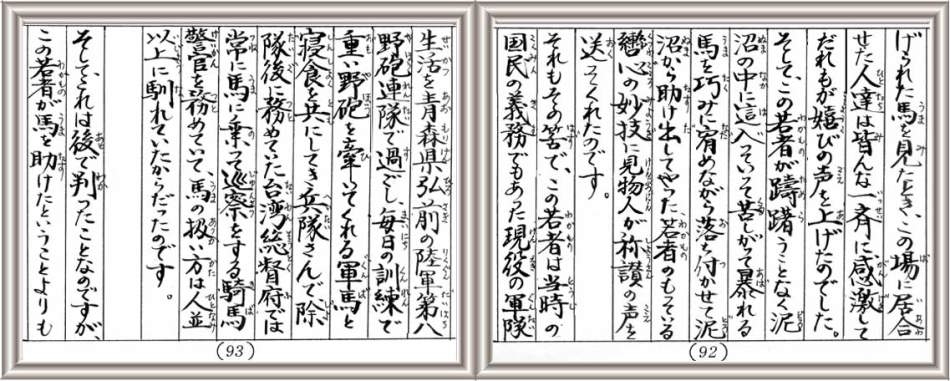 げられた馬を見たとき、この場に居合
せた人達は皆んな一斉に感激して
だれもが嬉びの声を上げたのでした。
そして、この若者が躊躇うことなく泥
沼の中に這入っていって苦しがって暴れる
馬を巧みに宥めながら落ち付かせて泥
沼から助け出してやった若者のもっている
轡心の妙技に見物人が称讃の声を
送ってくれたのです。
それもその筈で、この若者は当時の
国民の義務でもあった現役の軍隊
(92)
生活を青森県弘前の陸軍第八
野砲連隊で過ごし、毎日の訓練で
重い野砲を牽いてくれる軍馬と
寝食を共にしてきた兵隊さんで除
隊後に務めてた台湾総督府では
常に馬に乗って巡察をする騎馬
警官を務めていて、馬の扱い方は人並
以上に馴れていたからだったのです。
そして、これは後で判ったことなのですが、
この若者が馬を助けたということよりも
(93)